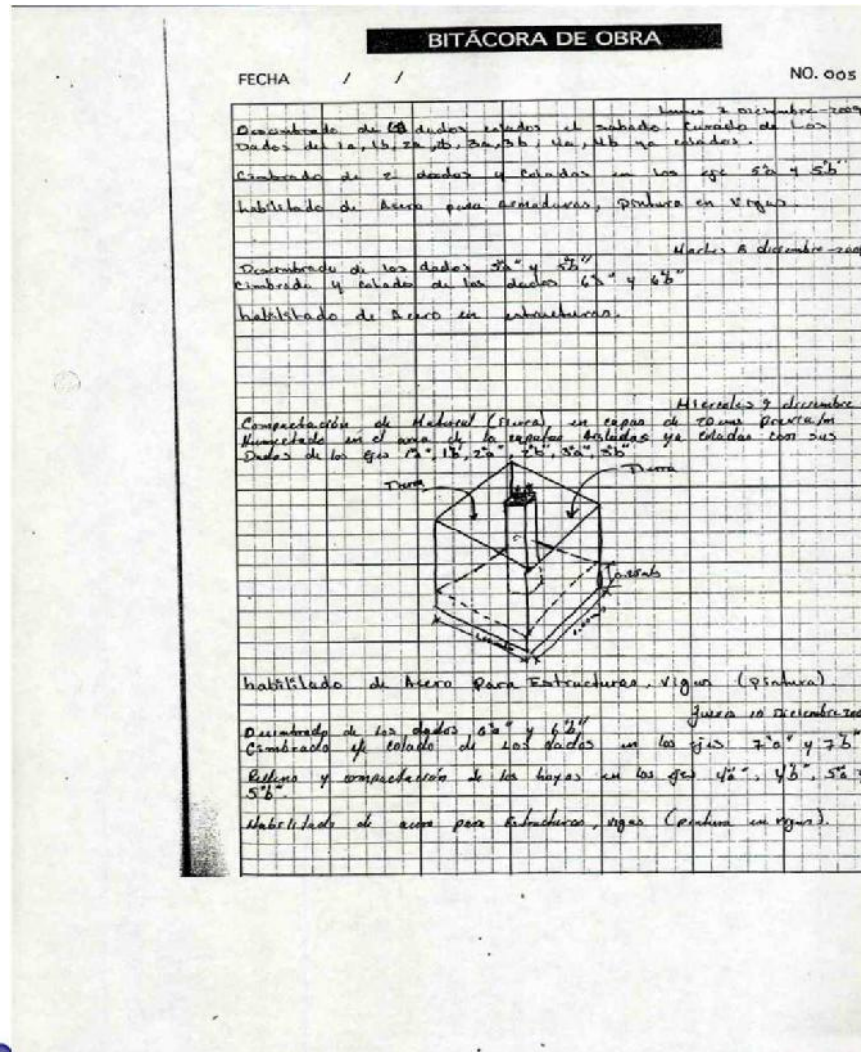 BITÁCORA DE OBRA
FECHA / / NO. 005
Lunes 7 Diciembre-2009
Descimbrado de dados colados el sabado. Curado de Los
Dados del 1a, 1b, 2a, 2b, 3a, 3b, 4a, 4b ya colados.
Cimbrado de 2 dados y colados en los eje 5"a" y 5"b"
habilitado de Acero para Armaduras, pintura en vigas.
Martes 8 diciembre-2009
Descimbrado de los dados 5"a" y 5"b"
Cimbrado y colado de los dados 6"a" y 6"b"
habilitado de Acero en estructuras.
Miercoles 9 diciembre
Compactación de Material (tierra) en capas de 20 cms
Humectado en el area de la zapatas Aisladas ya coladas con sus
Dados de los ejes 1"a", 1"b", 2"a", 2"b", 3"a", 3"b"
Tierra
Tierra
0.25 mts
habilitado de Acero Para Estructuras, vigas (pintura).
Jueves 10 Diciembre 200
Descimbrado de los dados 6"a" y 6"b"
Cimbrado y colado de los dados en los ejes 7"a" y 7"b"
Relleno y compactación de los hoyos en los ejes 4"a", 4"b", 5"a" y
5"b".
Habilitado de acero para Estructuras, vigas (pintura en vigas).